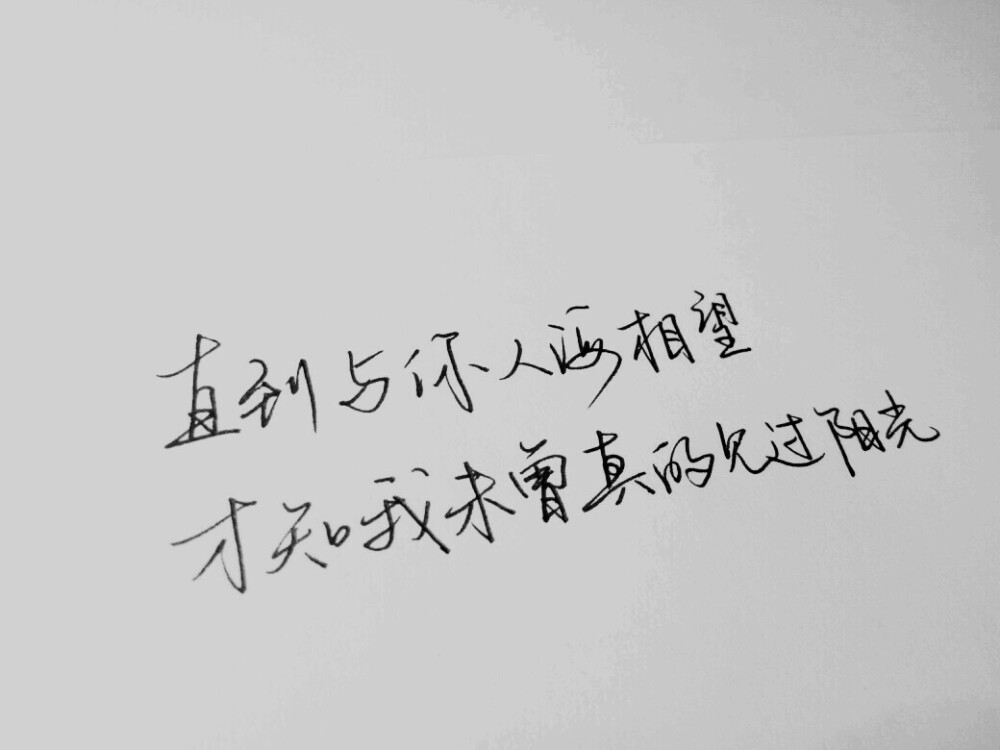 直到与你人海相望
才知我未曾真的见过阳光